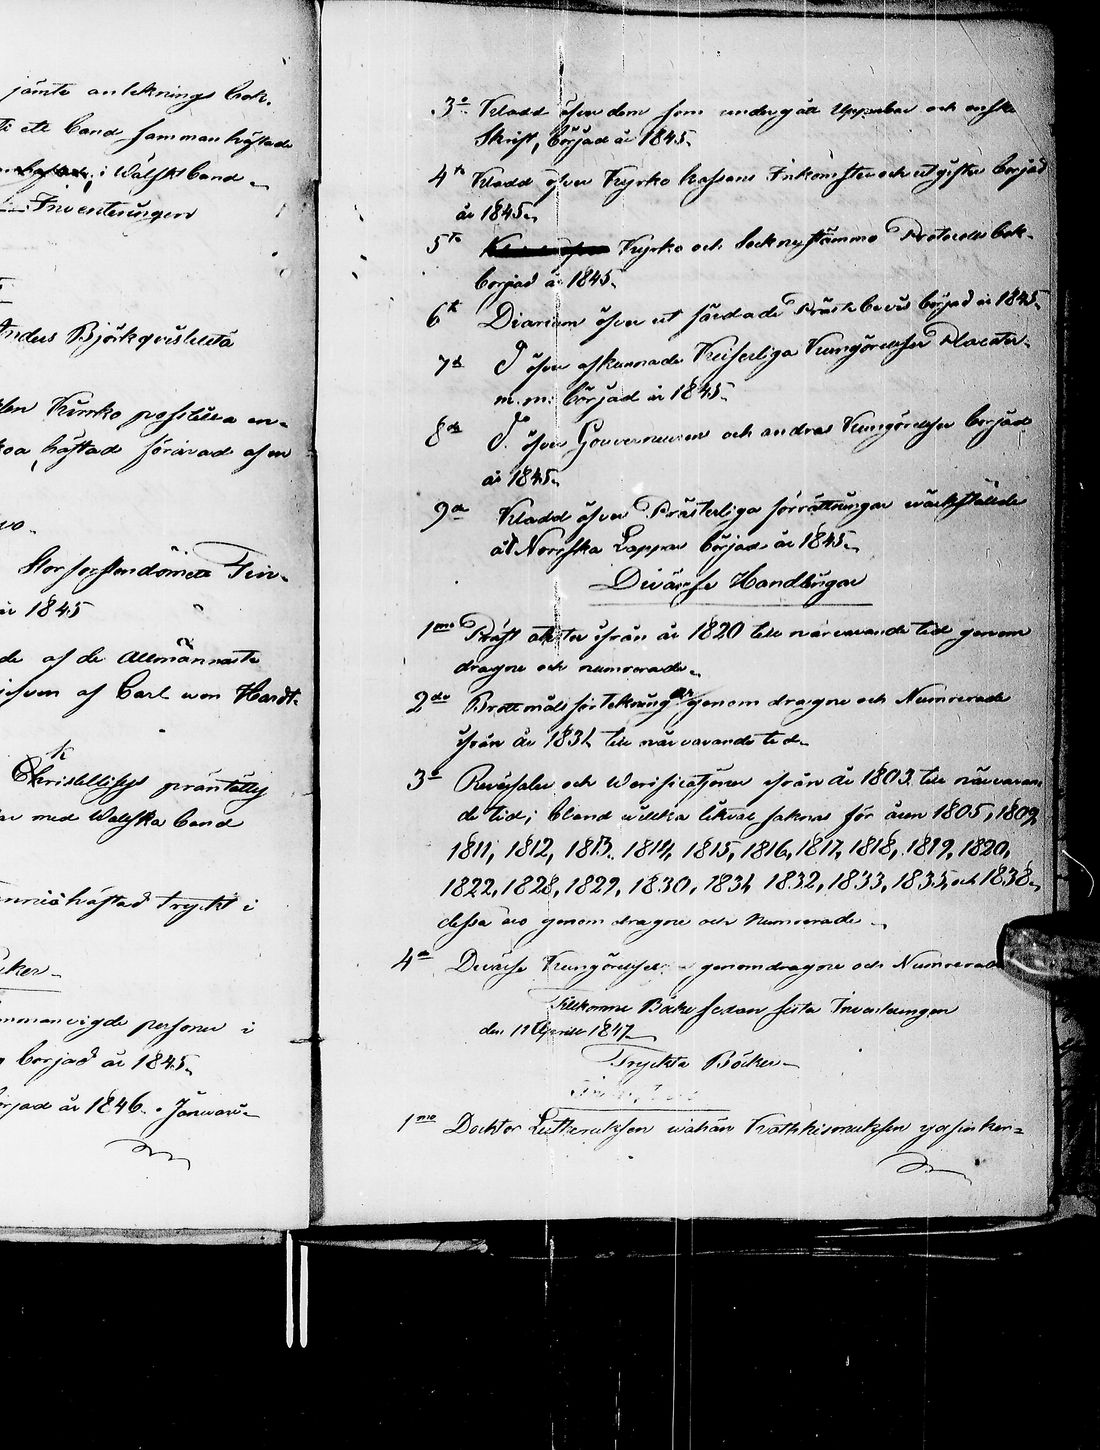 jämte anteknings bok.
ett band samman häftade
i Wälskt band
Inventeringen
Anders Björkqvists lilla
Kirrko postilla en-
häftad förärad af en
Storfurstendömet Fin-
år 1845
de af de Allmännaste
gifven af Carl von Hardt-
k
Christelliset präntätty
med Walska band
häftad tryckt i
Böcker
sammanvigde personer i
börjad år 1845.
börjad år 1846. Januari
3o Kladd öfver dem som undergått Uppenbar och enskt
Skrift, börjad år 1845.
4to Kladd öfver Kyrko kassans Inkomster och utgifter börjad
år 1845.
5to Kyrko och Sockne stämmo Protocolls bok.
börjad år 1845.
6to Diarium öfver utfärdade Präst bevis börjad år 1845.
7do Do öfver afkunnade Keiserliga Kungörelser Placater
m. m. börjad år 1845.
8do Do öfver Gouverneurens och andras Kungörelser börjad
år 1845.
9do Kladd öfver Prästerliga förrättningar wärkställde
åt Norrska Lappar börjad år 1845.
Diverse Handlingar
1mo Präst attester ifrån år 1820 till närvarande tid genom
dragne och numrerade.
2do Brottmåls förtekningar genom dragne och Numrerade
ifrån år 1831 till närvarande tid.
3o Reverssaler och Werificationer ifrån år 1803 till närvaran
de tid; bland wilka likväl saknas för åren 1805, 1809,
1811, 1812, 1813, 1814, 1815, 1816, 1817, 1818, 1819, 1820,
1822, 1828, 1829, 1830, 1831 1832, 1833, 1835, och 1838.
dessa äro genom dragne och Numrerade.
4o Diverse Kungörelser genomdragne och Numrerade
Tillkomne Böcker sedan sista Inventeringen
den 11 Aprill 1847
Tryckta Böcker
1mo Docktor Lutheruksen wähän Kathkismuksen yxsinker=